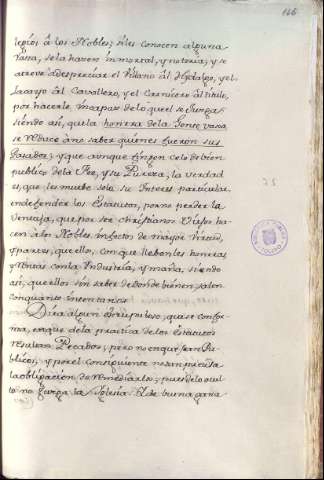 166
legios à los Nobles; si les conocen alguna
raza, se la hacen inmortal, y notoria; y se
atreve à despreciar el Villano âl Hidalgo, y el
Lacayo âl Cavallero, y el Carnicero âl titulo,
por hacerle incapaz de lo que el se Juzga
siendo asi, que la honrra de la Gente vaxa
se reduce à no saber quienes fueron sus
Pasados; y que aunque fingen celo de bien
publico de la Fee, y su Pureza, la verdad
es, que les mueve solo su Interes particular
en defender los Estatutos, por no perder la
Ventaja, que por ser christianos Viejos ha-
cen à los Nobles infectos de mayor Virtud,
y partes, que ellos, con que llebon los honrras
y Rentas con la Industria, y maña, siendo
asi, que ellos sin saber de donde bienen salen
con quanto intentan.
Dirà algun Escrupuloso, que se confor-
ma, en que de la practica de los Estatutos
resultan Pecados; pero no en que sean Pu-
blicos, y por el consiguiente no an precisa
la obligacion de remediarlos; pues de lo ocul-
to no Juzga la Iglesia. Y de buena gana